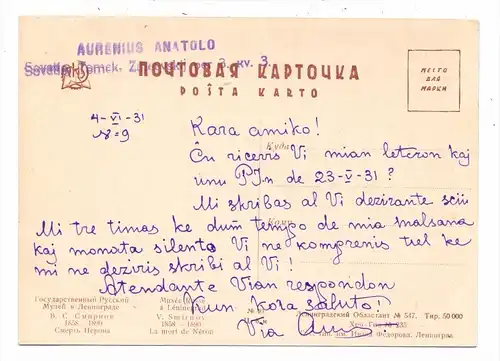 AURENIUS ANATOLO
Tomck. kv. 3.
ПОЧТОВАЯ КАРТОЧКА
POŜTA KARTO
МЕСТО
ДЛЯ
МАРКИ
4-VI-31
N=9
Kara amiko!
Куда
Ĉu ricevis Vi mian leteron kaj
unu PIn de 23-V-31?
Mi skribas al Vi dezirante scii
Кому
Mi tre timas ke dum tempo de mia malsana
kaj monata silento Vi ne komprenis tiel ke
mi ne deziris skribi al Vi!
Atendante Vian respondon
Kun kora saluto!
Via
Государственный Русский
Музей в Ленинграде
В. С. Смирнов
1858 – 1890
Смерть Нерона
Musée
à Lénin
V. Smirnov
1858 – 1890
La mort de Néron
Ленинградский Областлит № 547. Тир. 50 000
233
им. Ивана Федорова, Ленинград